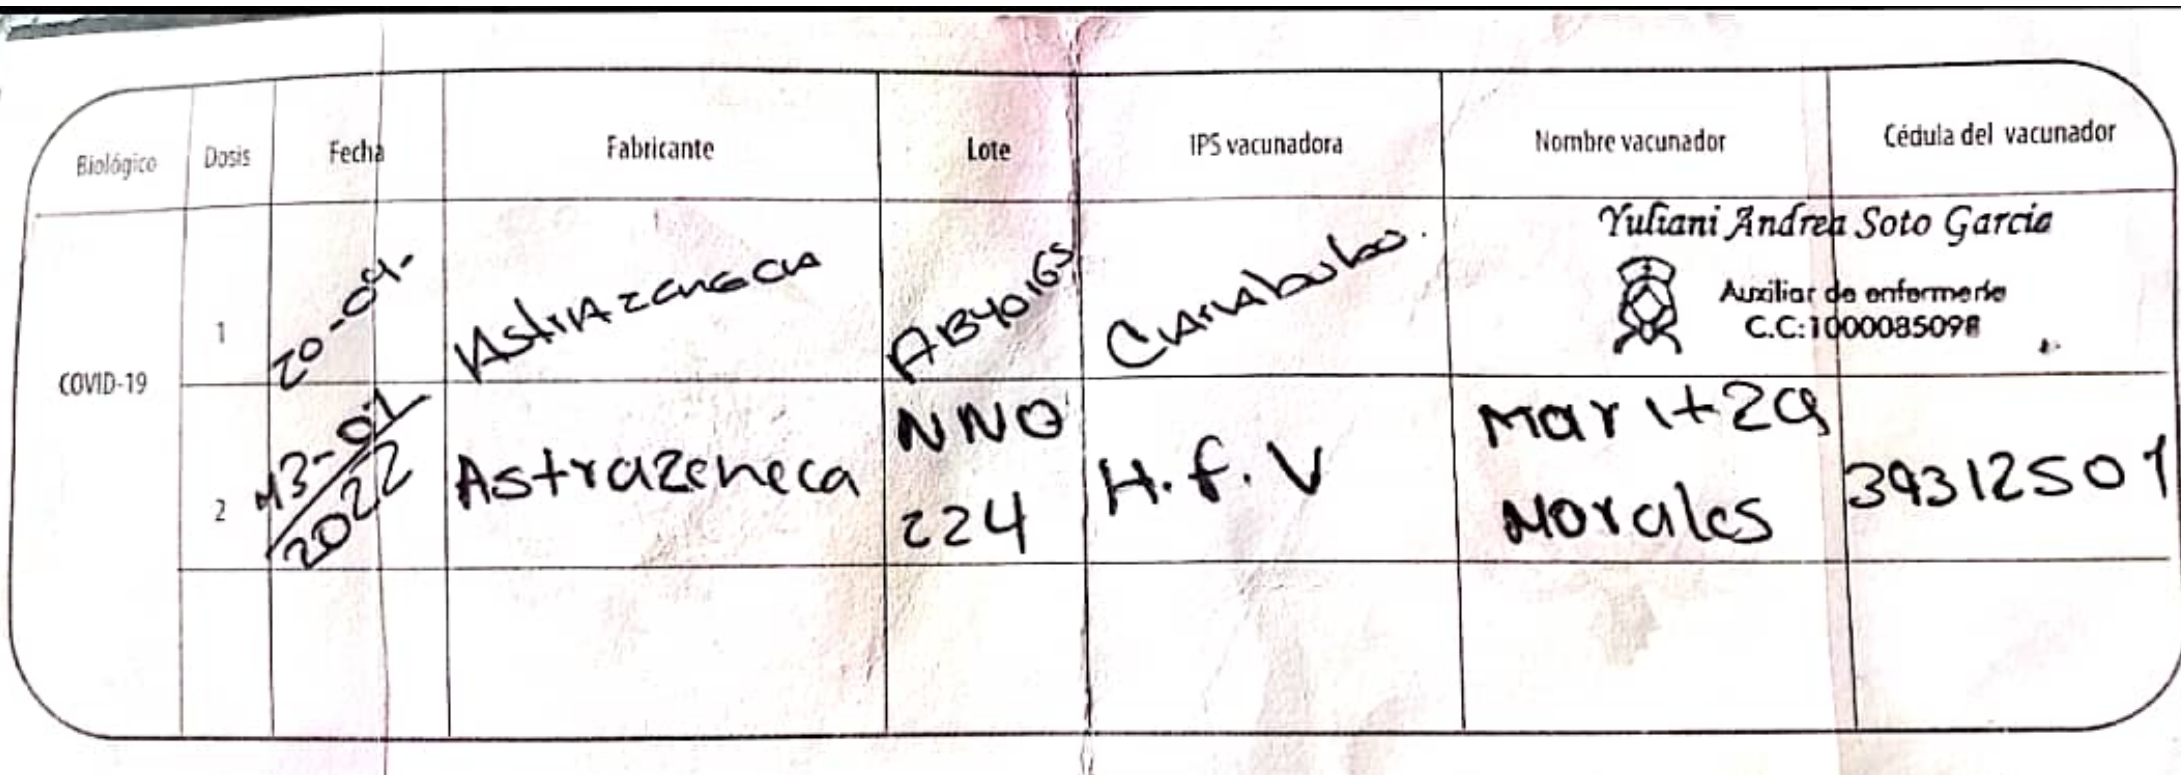 Biológico Dosis Fecha Fabricante Lote IPS vacunadora Nombre vacunador Cédula del vacunador
COVID-19
1 20-09- AstrAzeneca AB40165 CArAbobo.
Yuliani Andrea Soto García
Auxiliar de enfermería
C.C:1000085098
2 13-01/2022 Astrazeneca NNO 224 H.f.V Maritza Morales 39312501